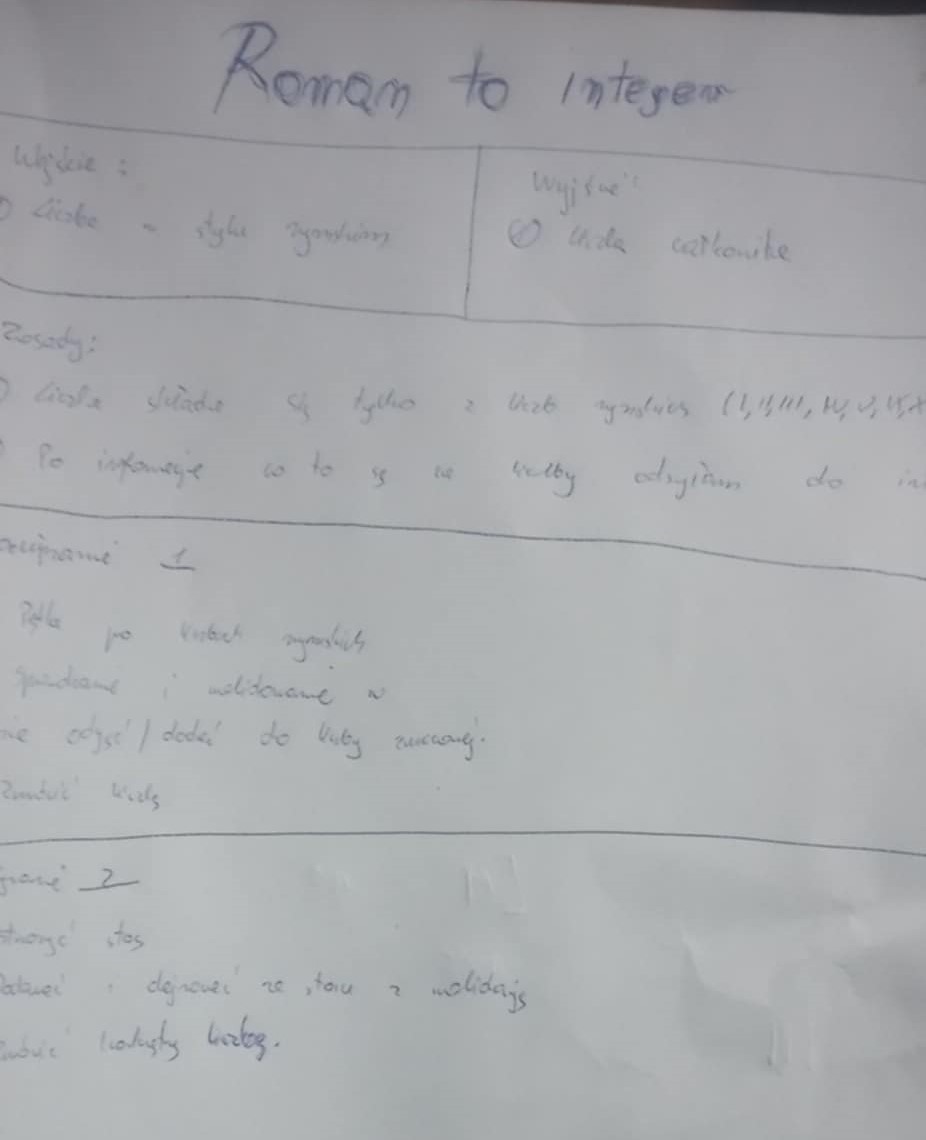 Roman to Integer
Wejście :
Liczba w stylu rzymskim
Wyjście
liczba całkowita
Zasady:
liczba składa się tylko z liczb rzymskich (I, II, III, IV, V, VI, X
Po informacje co to są za liczby odsyłam do in
1
Pętla po liczbach rzymskich
i walidowanie w
odjąć / dodać do liczby
Zwrócić liczbę
2
stos
i zdejmować ze stosu z walidacją
liczbę.